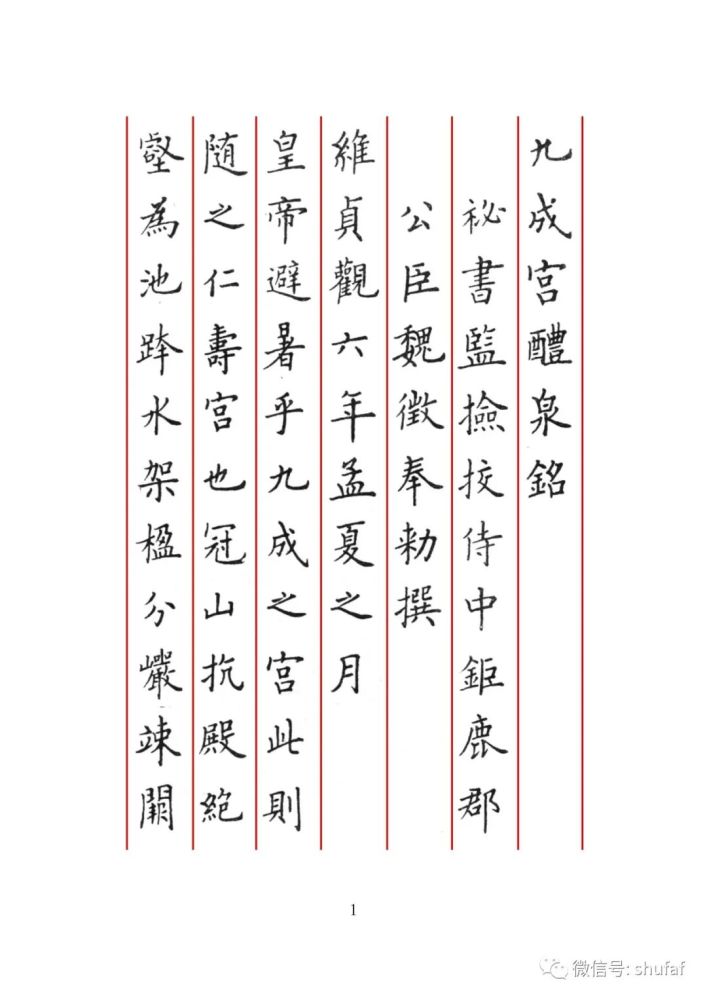 九成宮醴泉銘
祕書監撿挍侍中鉅鹿郡
公臣魏徵奉勑撰
維貞觀六年孟夏之月
皇帝避暑乎九成之宮此則
随之仁壽宮也冠山抗殿絕
壑為池跨水架楹分巖竦闕
1
微信号: shufaf